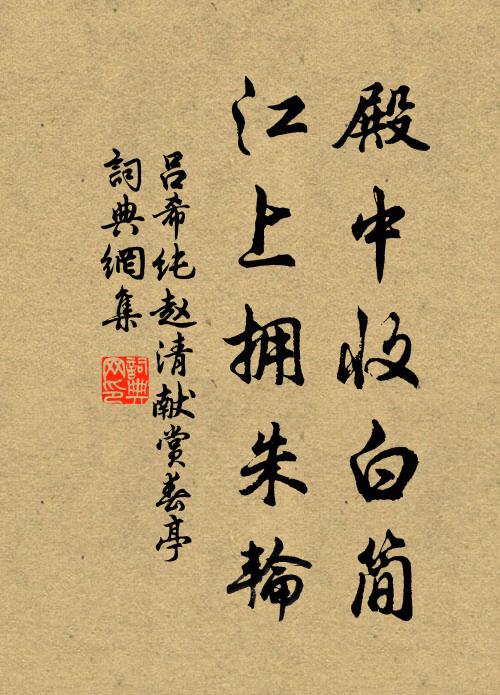 殿中收白简
江上拥朱轮
吕希纯赵清献赏春亭
詞典網集
詞典
网印